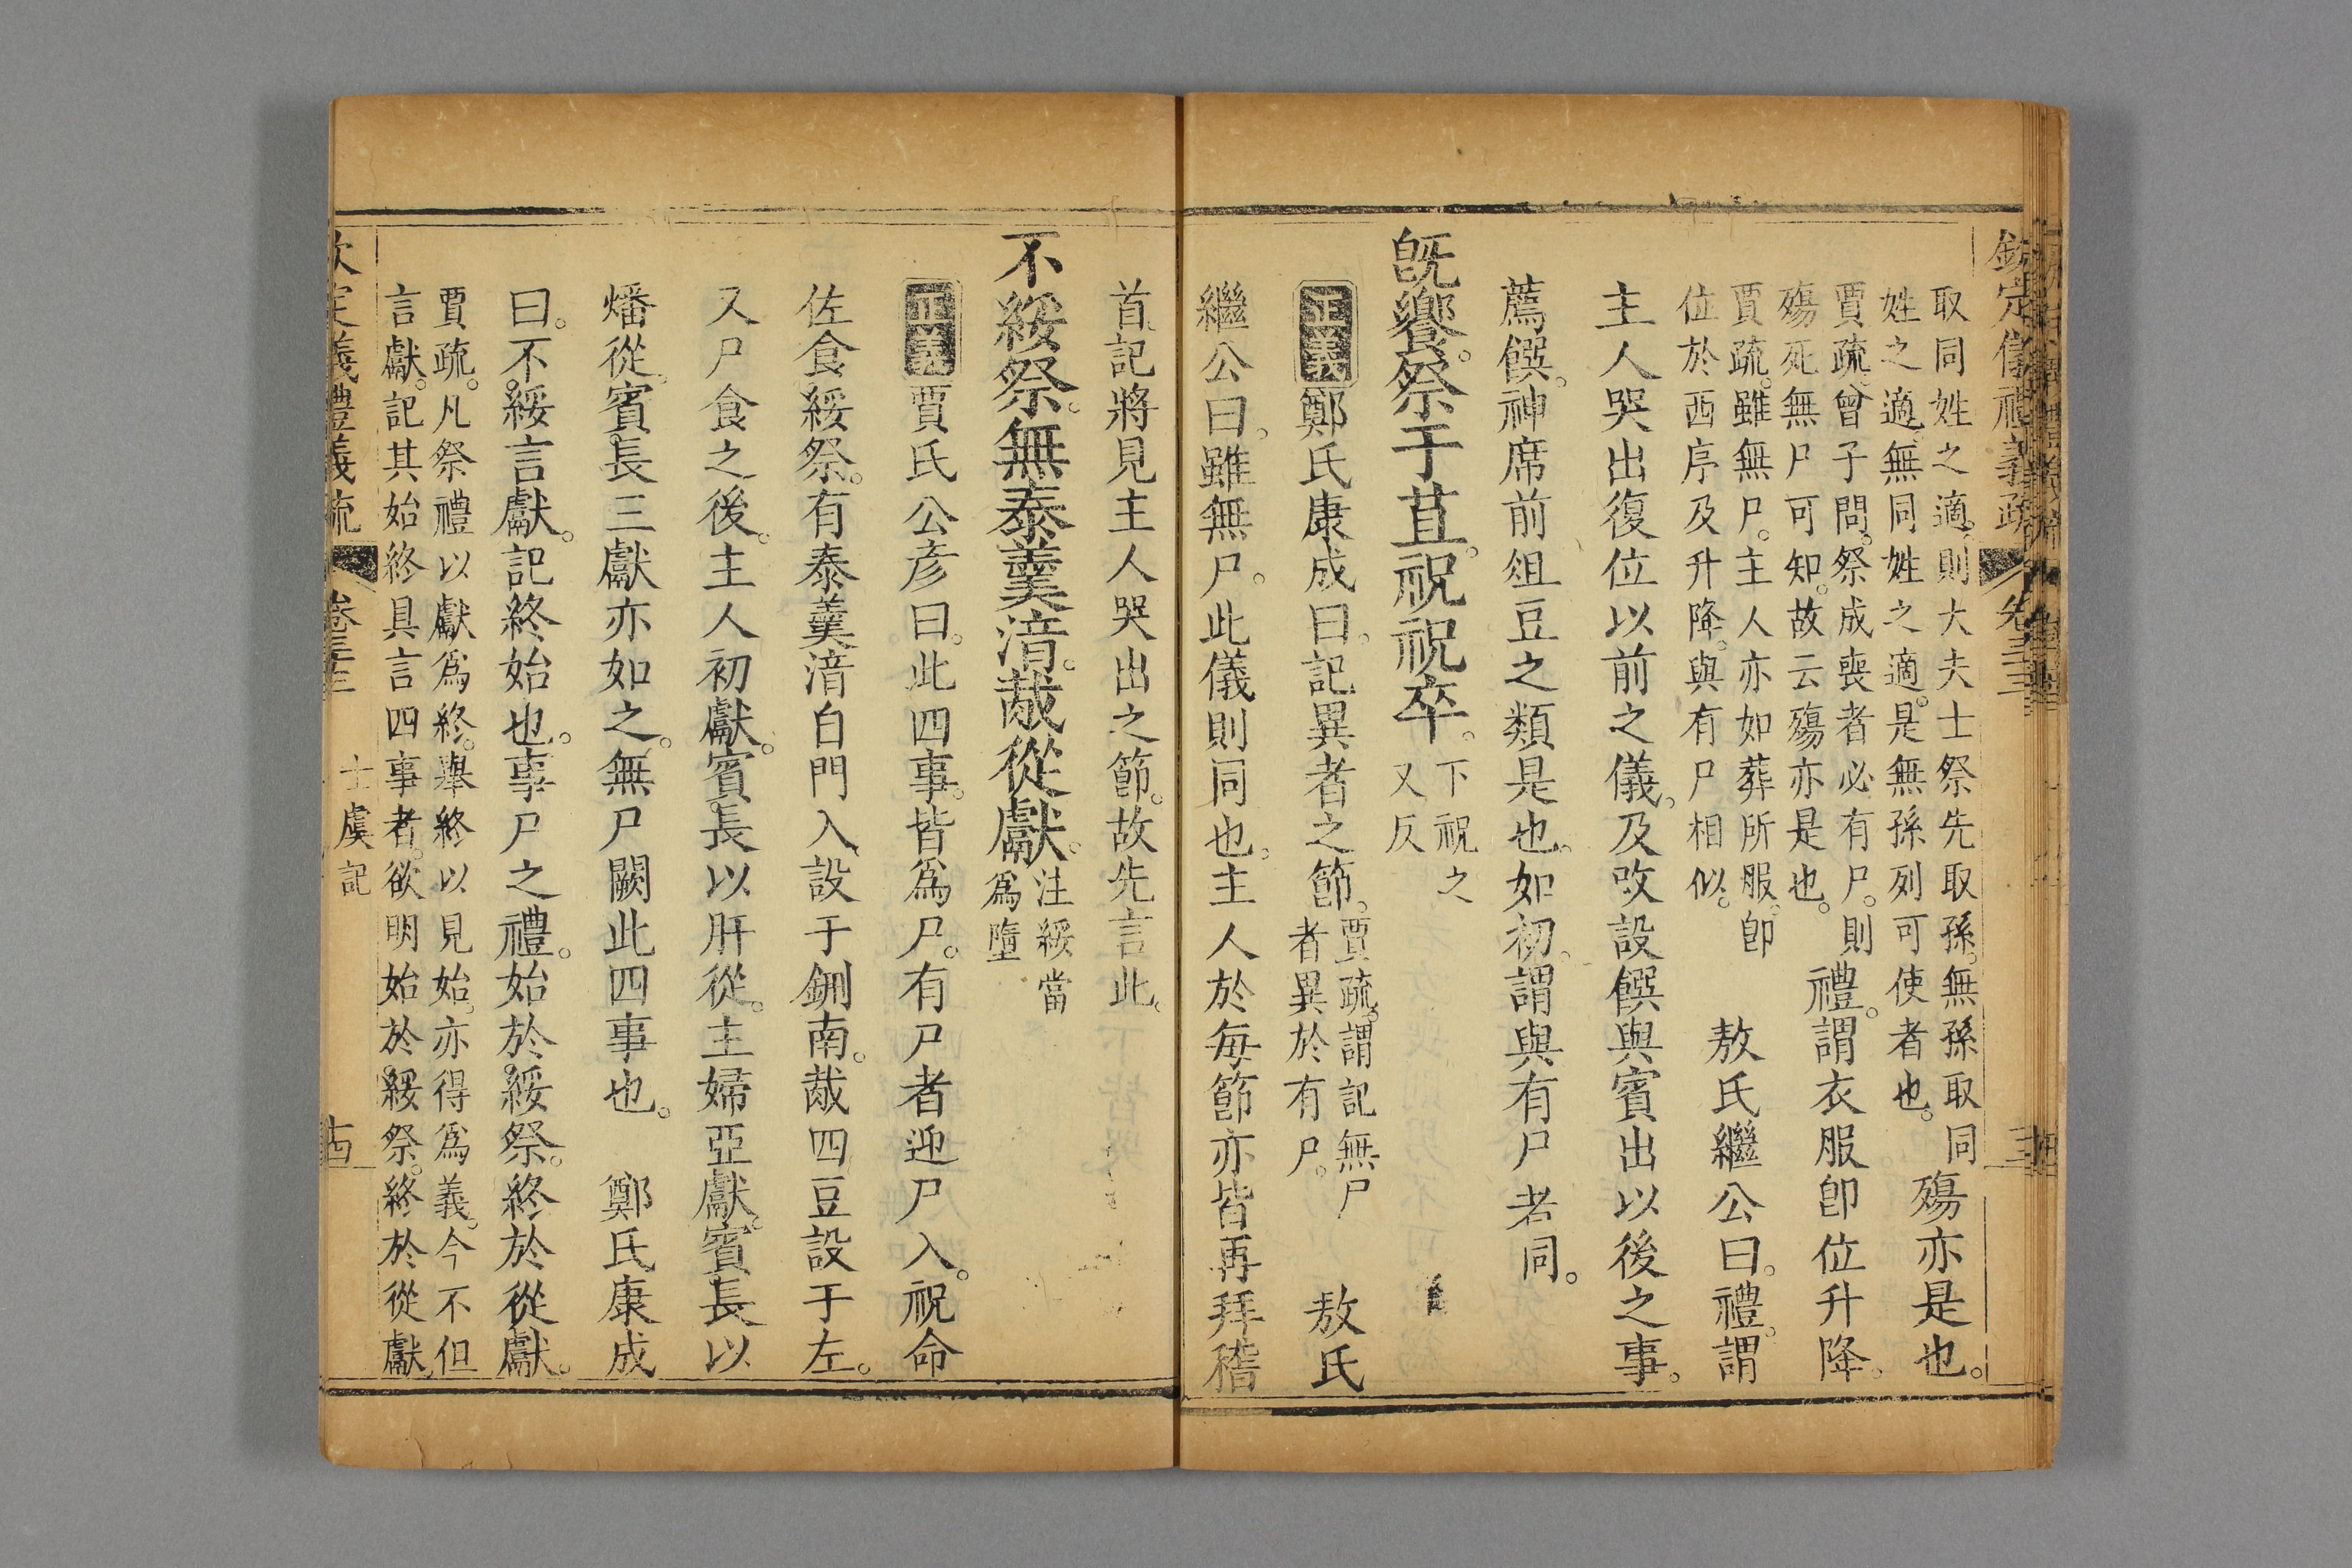 欽定儀禮義疏 卷三十三
取同姓之適。則大夫士祭先取孫。無孫取同
姓之適。無同姓之適。是無孫列可使者也。
殤亦是也。
賈疏。曾子問。祭成喪者必有尸。則
殤死無尸可知。故云殤亦是也。
禮。謂衣服卽位升降。
賈疏。雖無尸。主人亦如葬所服。卽
位於西序及升降。與有尸相似。
敖氏繼公曰。禮。謂
主人哭出復位以前之儀。及攺設饌與賓出以後之事。
薦饌。神席前俎豆之類是也。如初。謂與有尸者同。
旣饗。祭于苴。祝祝卒。
下祝之
又反
正義鄭氏康成曰。記異者之節。
賈疏。謂記無尸
者異於有尸。
敖氏
繼公曰。雖無尸。此儀則同也。主人於每節亦皆再拜稽
首。記將見主人哭出之節。故先言此。
不綏祭。無泰羹湆。胾從獻。
注綏當
爲墮
正義賈氏公彦曰。此四事。皆爲尸。有尸者迎尸入。祝命
佐食綏祭。有泰羹湆自門入。設于鉶南。胾四豆設于左。
又尸食之後。主人初獻。賓長以肝從。主婦亞獻。賓長以
燔從。賓長三獻亦如之。無尸闕此四事也。 鄭氏康成
曰。不綏言獻。記終始也。事尸之禮。始於綏祭。終於從獻。
賈疏。凡祭禮以獻爲終。舉終以見始。亦得爲義。今不但
言獻。記其始終具言四事者。欲明始於綏祭。終於從獻
士虞記